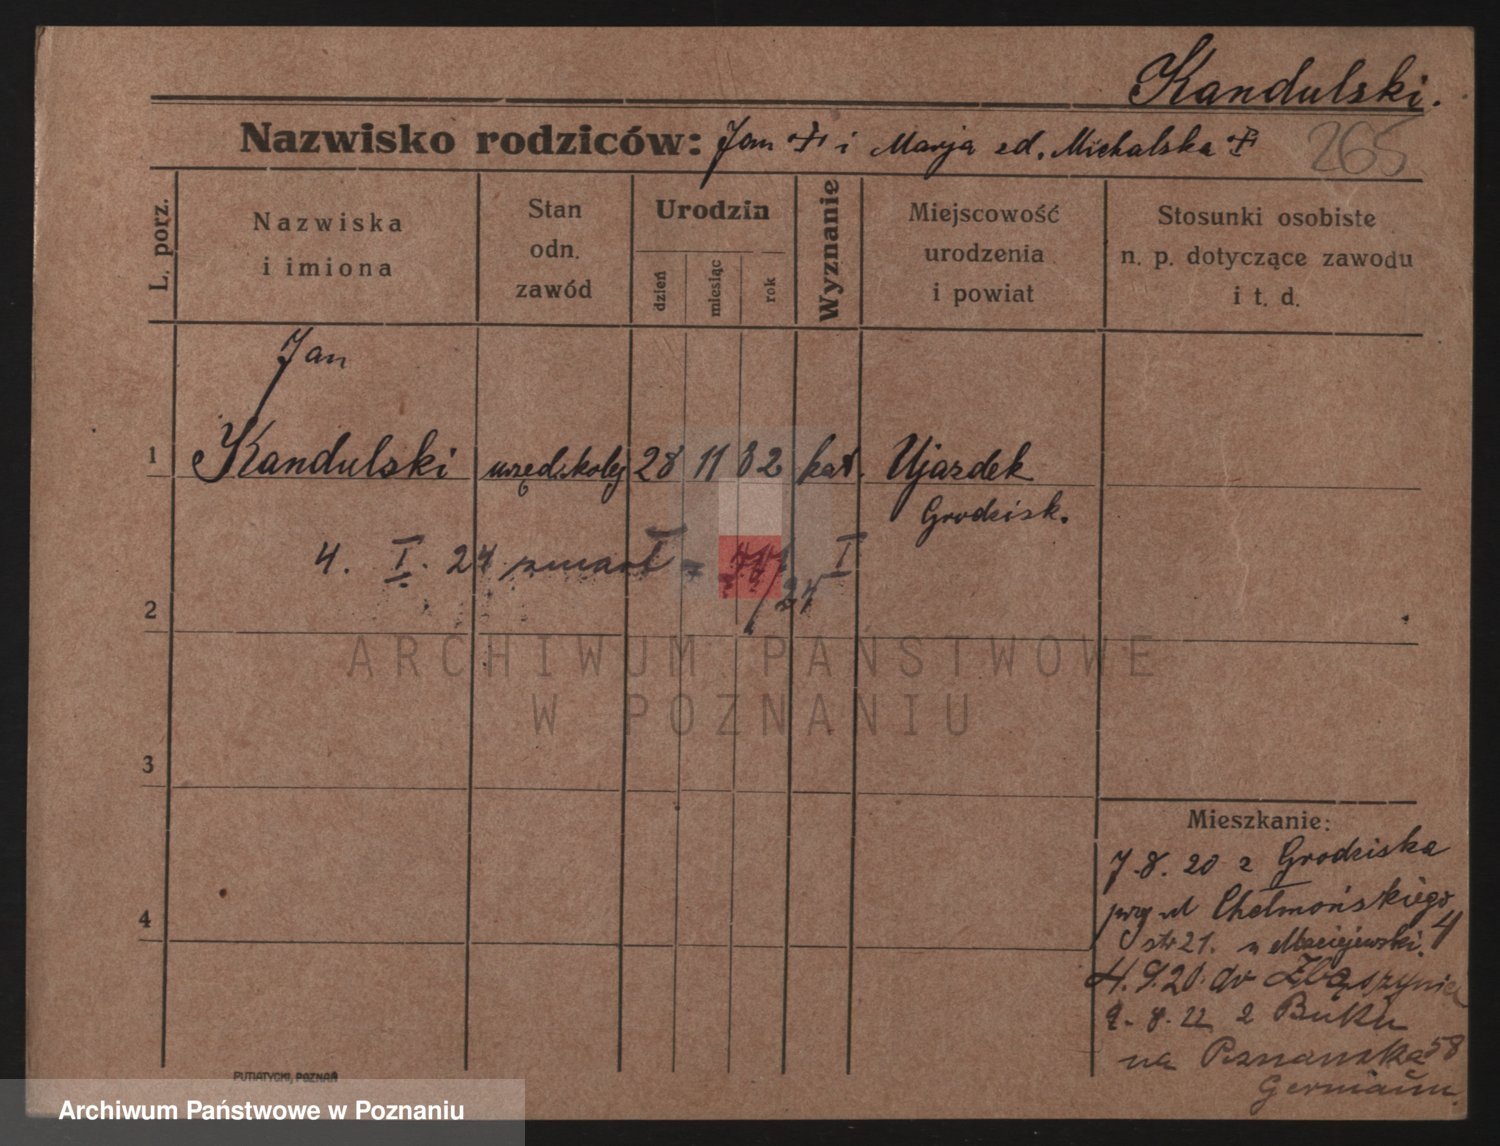 Kandulski.
Nazwisko rodziców: Jan i Marja zd. Michalska
265
L. porz.
Nazwiska
i imiona
Stan
odn.
zawód
Urodzin
dzień
miesiąc
rok
Wyznanie
Miejscowość
urodzenia
i powiat
Stosunki osobiste
n. p. dotyczące zawodu
i t. d.
Jan
1 Kandulski urzęd. kolej 28 11 82 kat. Ujazdek
Grodzisk.
4. I. 24 zmarł I
/24
2
ARCHIWUM PAŃSTWOWE
W POZNANIU
3
Mieszkanie:
7.8.20 z Grodziska
przy ul Chełmońskiego
str 21. u Maciejewski. 4
4.9.20. do Zbąszynia
2.8.22 z Buku
na Poznańska 58
4
PUTIATYCKI, POZNAŃ
Archiwum Państwowe w Poznaniu